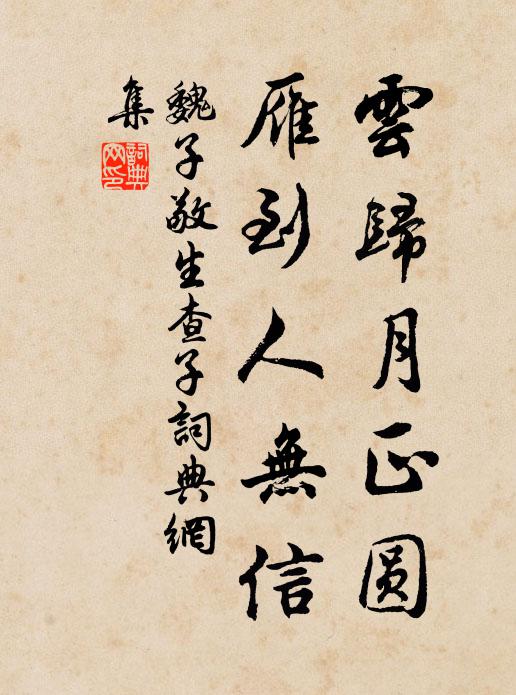 雲歸月正圓
雁到人無信
魏子敬生查子詞典網
集
詞典
網印